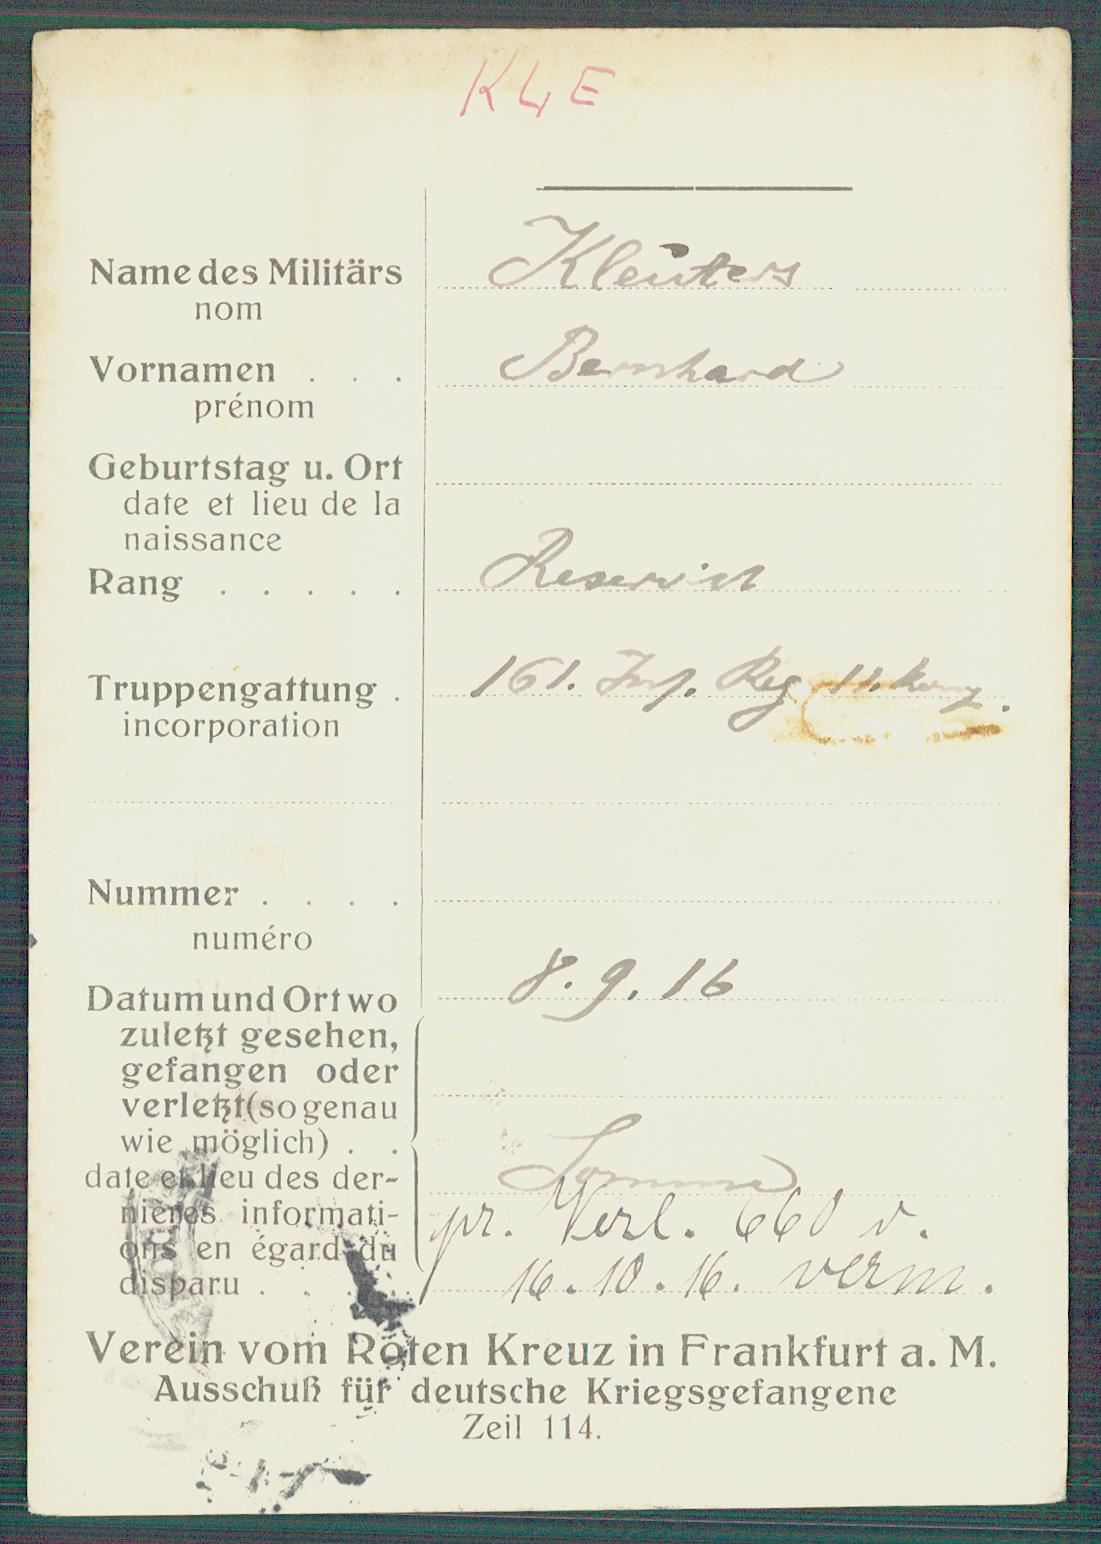 KLE
Name des Militärs Kleuters
nom
Vornamen . . . Bernhard
prénom
Geburtstag u. Ort
date et lieu de la
naissance
Rang . . . . . Reservist
Truppengattung . 161. Inf. Reg 11. Komp.
incorporation
Nummer . . . .
numéro
Datum und Ort wo 8.9.16
zuletzt gesehen,
gefangen oder
verletzt (so genau
wie möglich) . .
date et lieu des der- Somme
nières informati- pr. Verl. 660 v.
ons en égard du
disparu . . . . 16.10.16. verm.
Verein vom Roten Kreuz in Frankfurt a. M.
Ausschuß für deutsche Kriegsgefangene
Zeil 114.